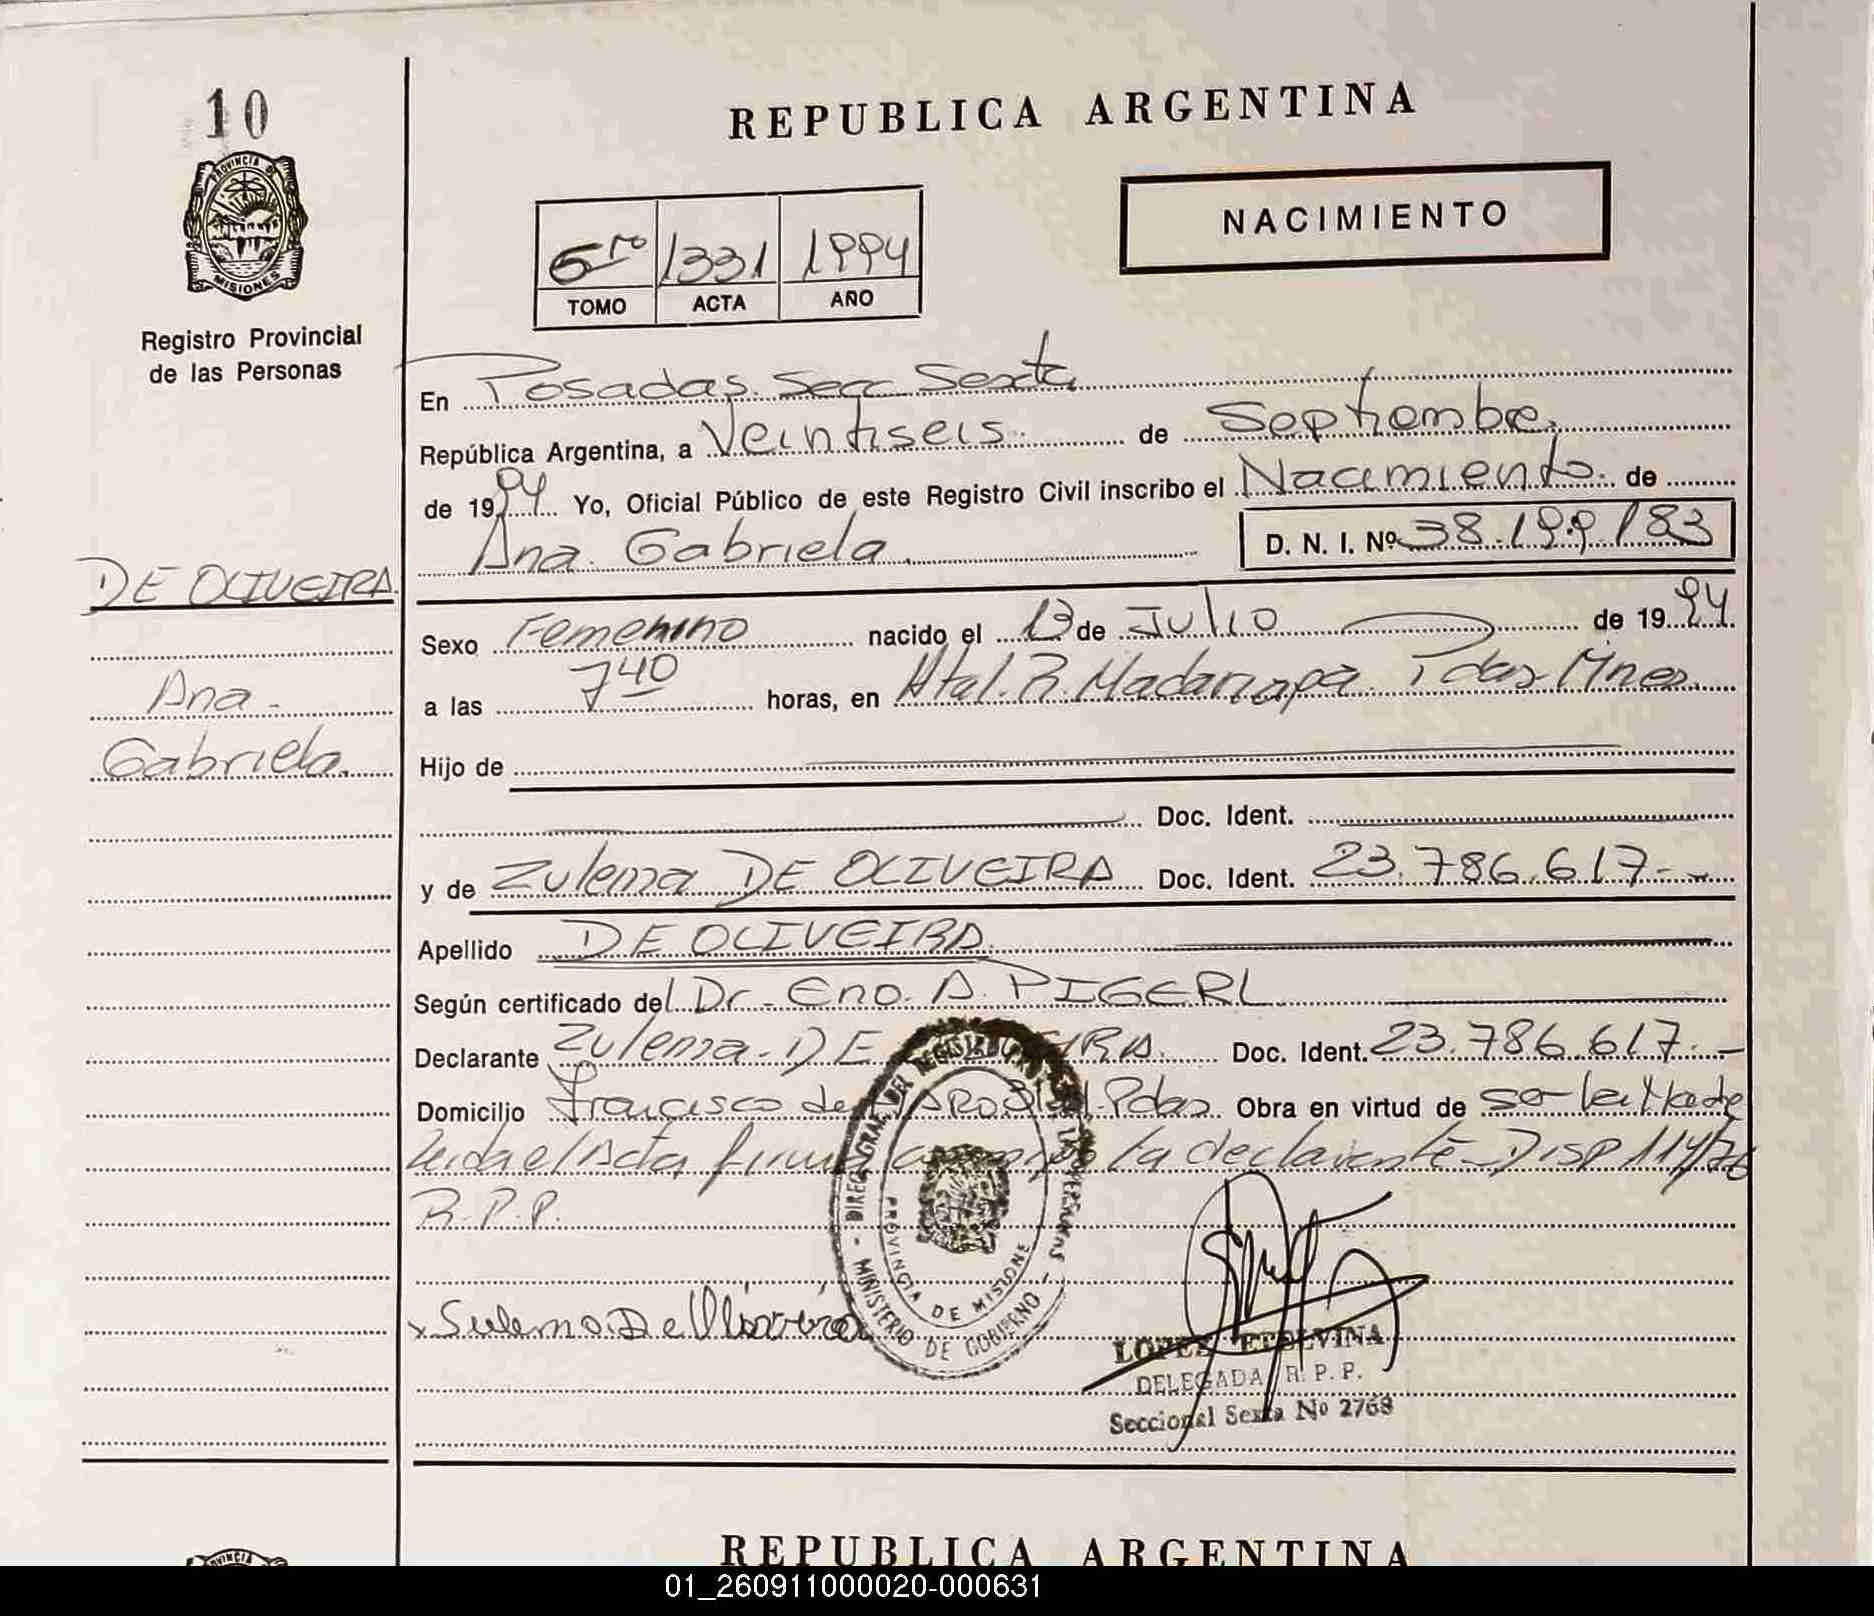 10
PROVINCIA DE
MISIONES
Registro Provincial
de las Personas
DE OLIVEIRA
Ana
Gabriela
REPUBLICA ARGENTINA
NACIMIENTO
6to 1331 1994
TOMO ACTA AÑO
En Posadas. Secc Sexta
República Argentina, a Veintiseis de Septiembre
de 1994 Yo, Oficial Público de este Registro Civil inscribo el Nacimiento de
Ana Gabriela D. N. I. Nº 38.199.183
Sexo Femenino nacido el 13 de Julio de 1994
a las 7 40 horas, en Htal. R. Madariaga Pdas Mnes
Hijo de
Doc. Ident.
y de Zulema DE OLIVEIRA Doc. Ident. 23.786.617.-
Apellido DE OLIVEIRA
Según certificado del Dr. Eno. A. PIGERL
Declarante Zulema DE IRA Doc. Ident. 23.786.617.-
Domicilio Francisco de Pdas Obra en virtud de ser la Madre
Leida el Acta la declarante - Disp 114/76
R.P.P.
DIREC. GRAL. DEL REGISTRO DE LAS PERSONAS - MINISTERIO DE GOBIERNO -
PROVINCIA DE MISIONE
x Sulema De Oliveira
LOPEZ ETELVINA
DELEGADA R. P. P.
Seccional Sexta Nº 2768
PROVINCIA
REPUBLICA ARGENTINA
01_260911000020-000631